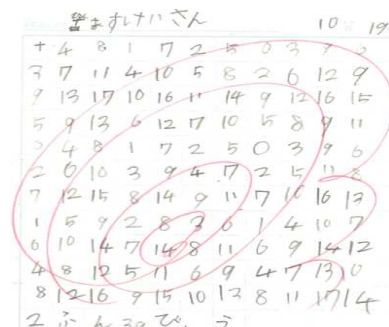 ますけいさん 10 19
+ 4 8 1 7 2 5 0 3 9 6
3 7 11 4 10 5 8 6 12 9
9 13 17 10 16 11 14 9 12 15
5 9 13 6 12 7 10 5 8 11
0 4 8 1 7 2 5 0 3 9 6
2 6 10 3 9 4 7 2 5 11 8
7 15 8 14 9 7 10 16 13
1 5 9 2 8 3 6 1 4 10 7
6 10 14 7 8 11 6 9 12
4 8 12 5 11 6 9 4 7 13 10
8 12 16 9 15 10 13 8 11 17 14
2ふん39びょう